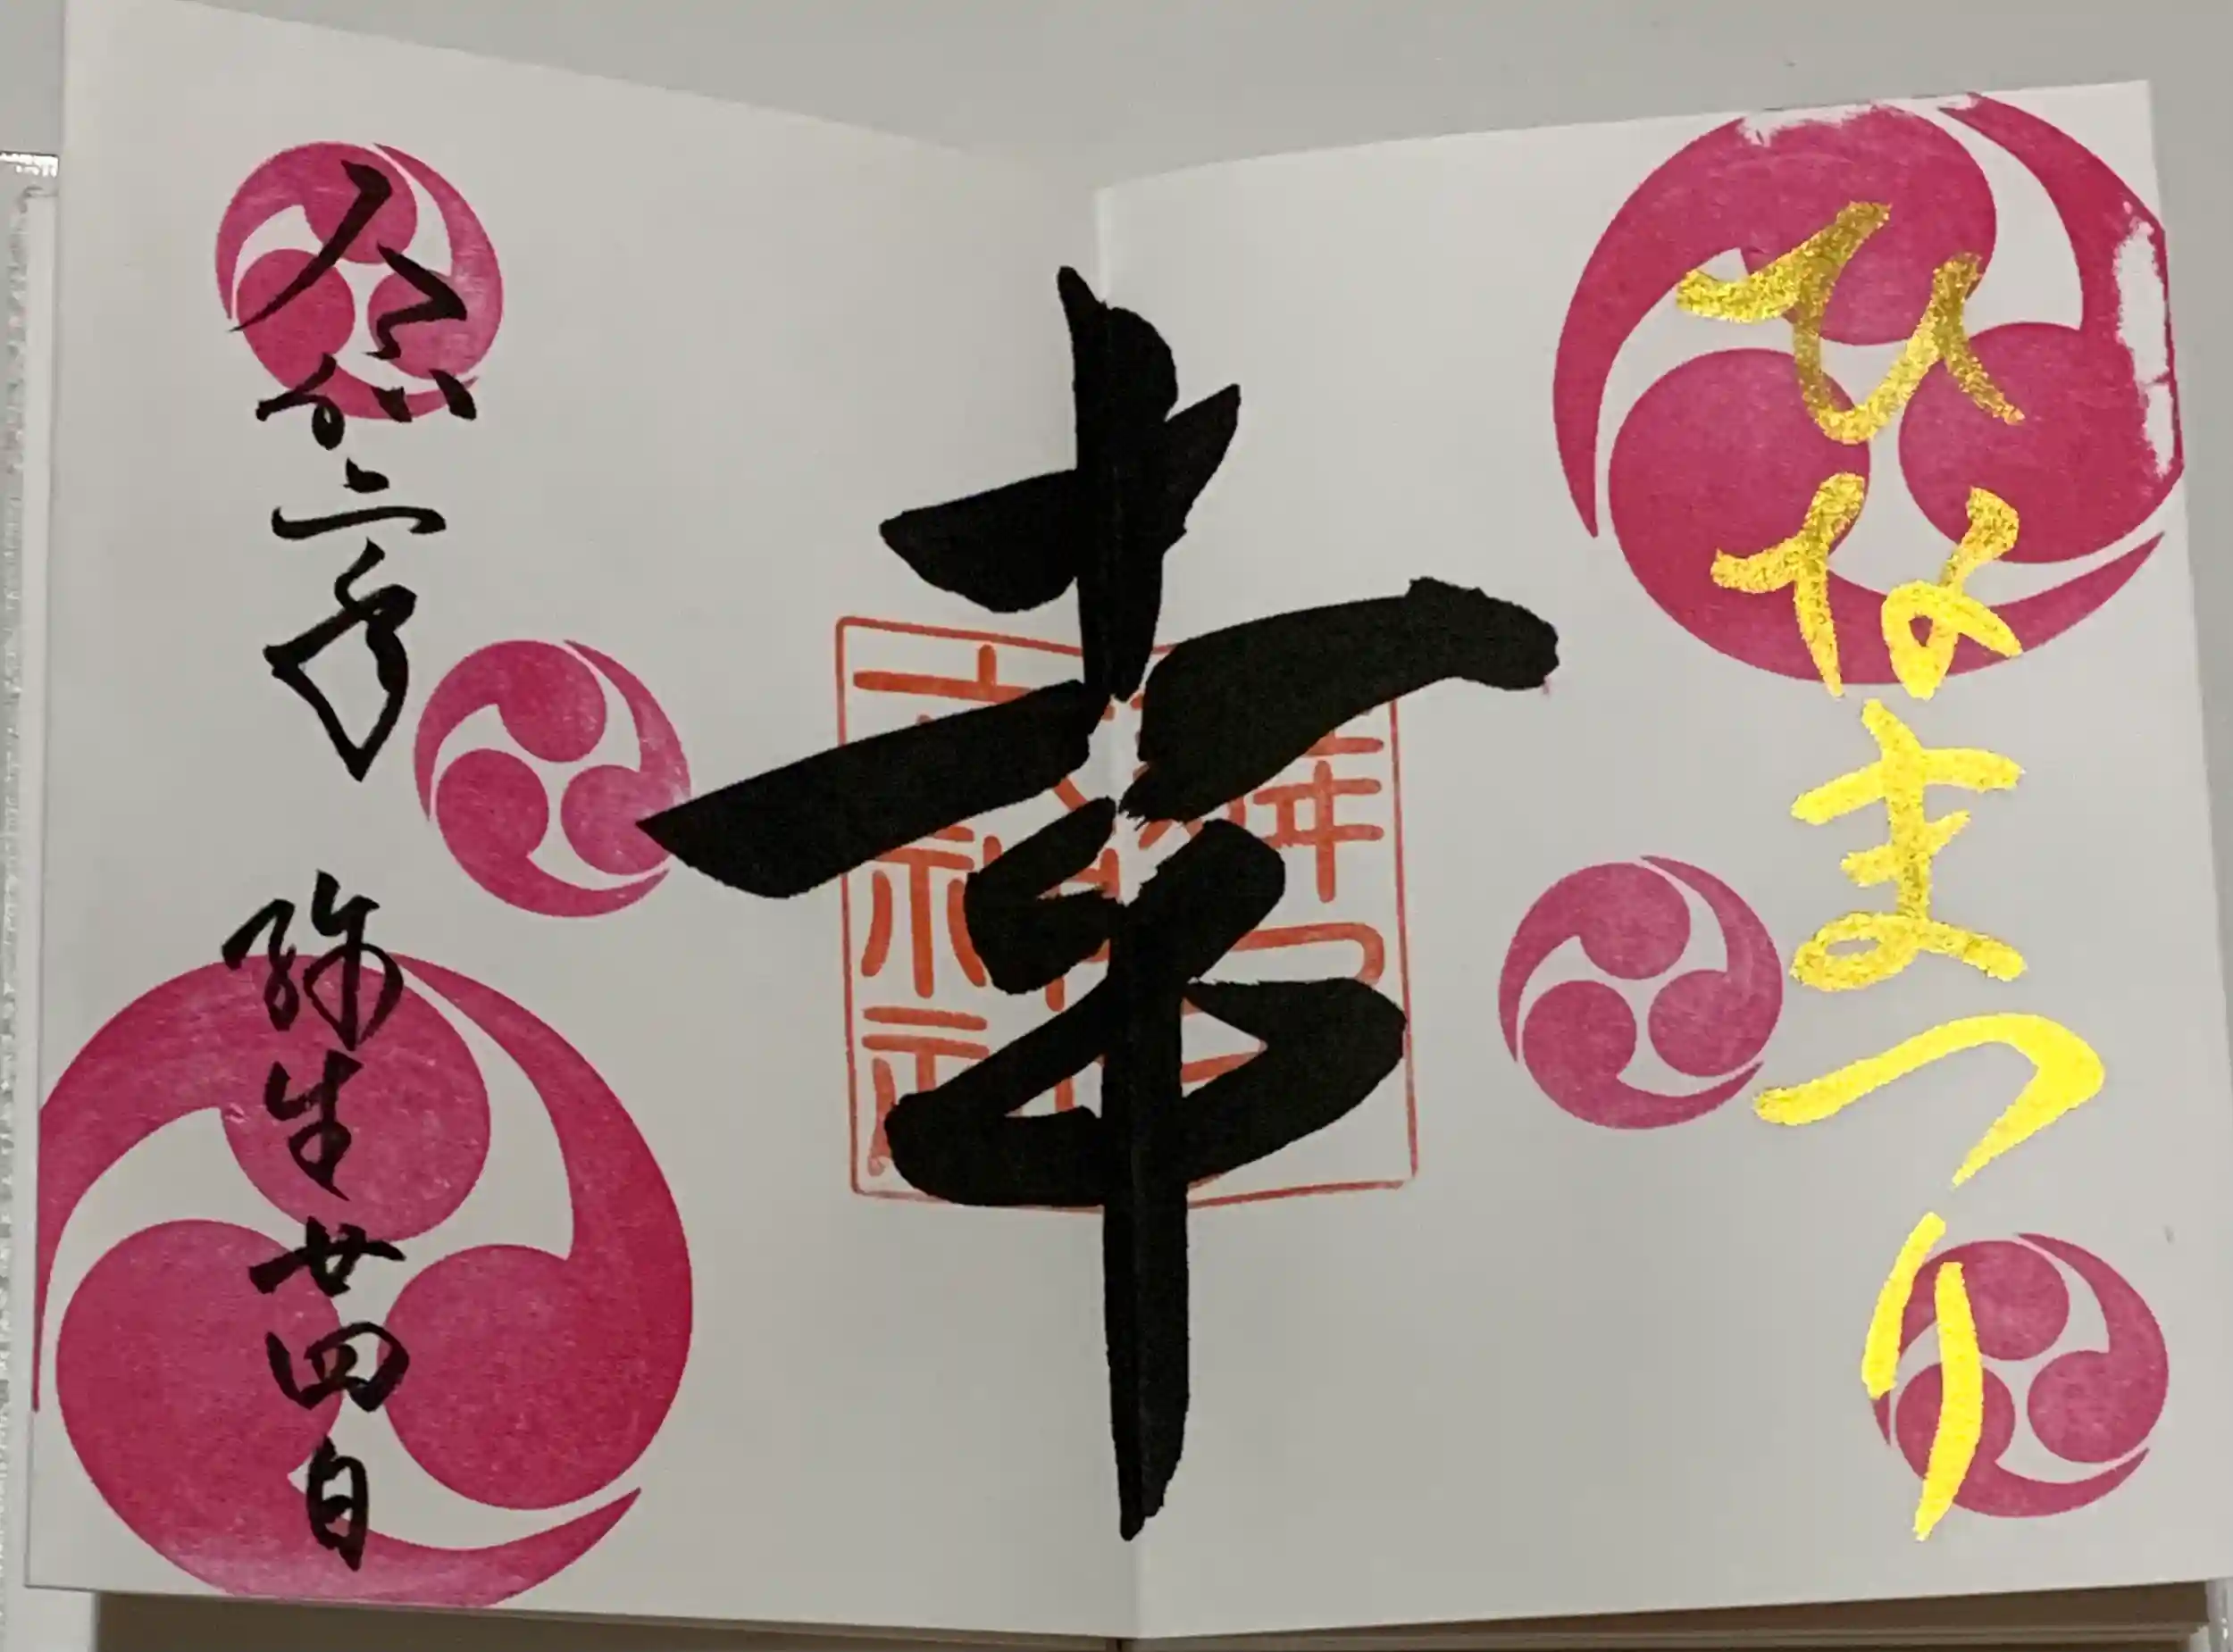 ひなまつり
幸
令和六年 弥生廿四日